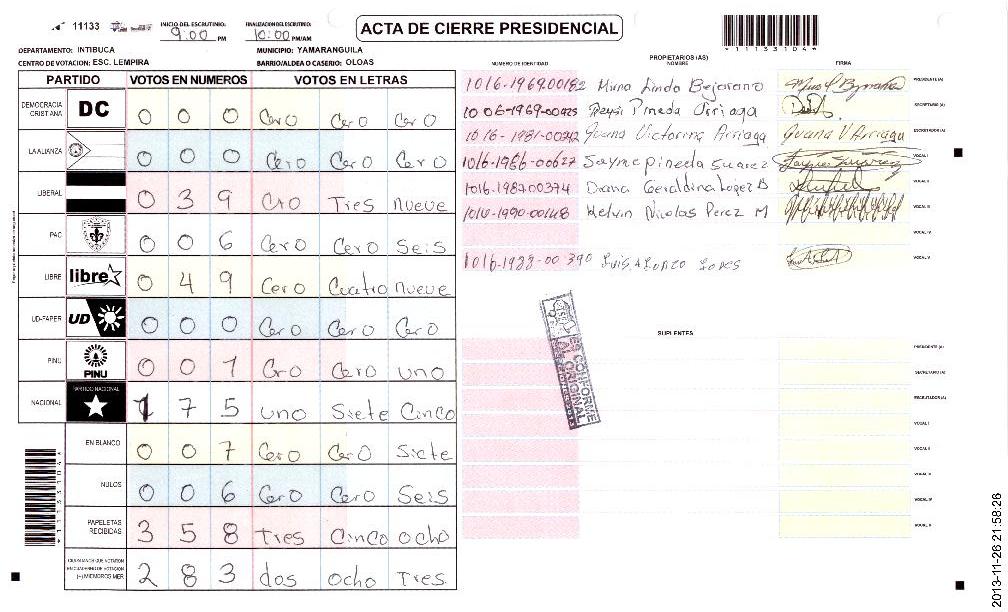 11133
INICIO DEL ESCRUTINIO: 9:00 PM
FINALIZACION DEL ESCRUTINIO: 10:00 PM/AM
ACTA DE CIERRE PRESIDENCIAL
*1113310 4*
DEPARTAMENTO: INTIBUCA
MUNICIPIO: YAMARANGUILA
CENTRO DE VOTACION: ESC. LEMPIRA
BARRIO/ALDEA O CASERIO: OLOAS
PARTIDO VOTOS EN NUMEROS VOTOS EN LETRAS
DEMOCRACIA CRISTIANA DC 0 0 0 Cero Cero Cero
LA ALIANZA 0 0 0 Cero Cero Cero
LIBERAL 0 3 9 Cro Tres nueve
PAC 0 0 6 Cero Cero Seis
LIBRE libre 0 4 9 Cero Cuatro nueve
UD-FAPER UD 0 0 0 Cero Cero Cero
PINU PINU 0 0 1 Cero Cero uno
NACIONAL PARTIDO NACIONAL 1 7 5 uno Siete Cinco
EN BLANCO 0 0 7 Cero Cero Siete
NULOS 0 0 6 Cero Cero Seis
PAPELETAS RECIBIDAS 3 5 8 Tres Cinco ocho
(+) MIEMBROS MER 2 8 3 dos ocho Tres
PROPIETARIOS (AS)
NUMERO DE IDENTIDAD NOMBRE FIRMA
1016-1969.00182 Lindo Bejarano PRESIDENTE (A)
1006-1969-00425 Pineda Arriaga SECRETARIO (A)
1016-1981-00242 Juana Victorina Arriaga Juana V Arriaga ESCRUTADOR (A)
1016-1986-00627 Sayme pineda Suarez VOCAL I
1016-198700374 Diana Geraldina Lopez B VOCAL II
1016-1990-00148 Kelvin Nicolas Perez M VOCAL III
VOCAL IV
1016-1988-00390 Luis Alonzo Lopes VOCAL V
ES CONFORME AL ORIGINAL
SUPLENTES
PRESIDENTE (A)
SECRETARIO (A)
ESCRUTADOR (A)
VOCAL I
VOCAL II
VOCAL III
VOCAL IV
VOCAL V
2013-11-26 21:58:26